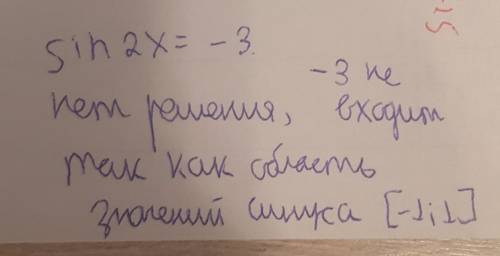 sin 2x = -3.
-3 не
нет решения, входит
так как область
значений синуса [-1;1]